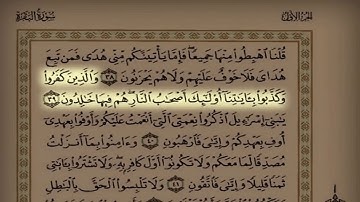 الجزء الأول
سورة البقرة
قُلْنَا ٱهْبِطُوا۟ مِنْهَا جَمِيعًا ۖ فَإِمَّا يَأْتِيَنَّكُم مِّنِّى هُدًى فَمَن تَبِعَ
هُدَاىَ فَلَا خَوْفٌ عَلَيْهِمْ وَلَا هُمْ يَحْزَنُونَ ٣٨ وَٱلَّذِينَ كَفَرُوا۟
وَكَذَّبُوا۟ بِـَٔايَـٰتِنَآ أُو۟لَـٰٓئِكَ أَصْحَـٰبُ ٱلنَّارِ ۖ هُمْ فِيهَا خَـٰلِدُونَ ٣٩
يَـٰبَنِىٓ إِسْرَٰٓءِيلَ ٱذْكُرُوا۟ نِعْمَتِىَ ٱلَّتِىٓ أَنْعَمْتُ عَلَيْكُمْ وَأَوْفُوا۟ بِعَهْدِىٓ
أُوفِ بِعَهْدِكُمْ وَإِيَّـٰىَ فَٱرْهَبُونِ ٤٠ وَءَامِنُوا۟ بِمَآ أَنزَلْتُ
مُصَدِّقًا لِّمَا مَعَكُمْ وَلَا تَكُونُوٓا۟ أَوَّلَ كَافِرٍۭ بِهِۦ ۖ وَلَا تَشْتَرُوا۟ بِـَٔايَـٰتِى
ثَمَنًا قَلِيلًا وَإِيَّـٰىَ فَٱتَّقُونِ ٤١ وَلَا تَلْبِسُوا۟ ٱلْحَقَّ بِٱلْبَـٰطِلِ